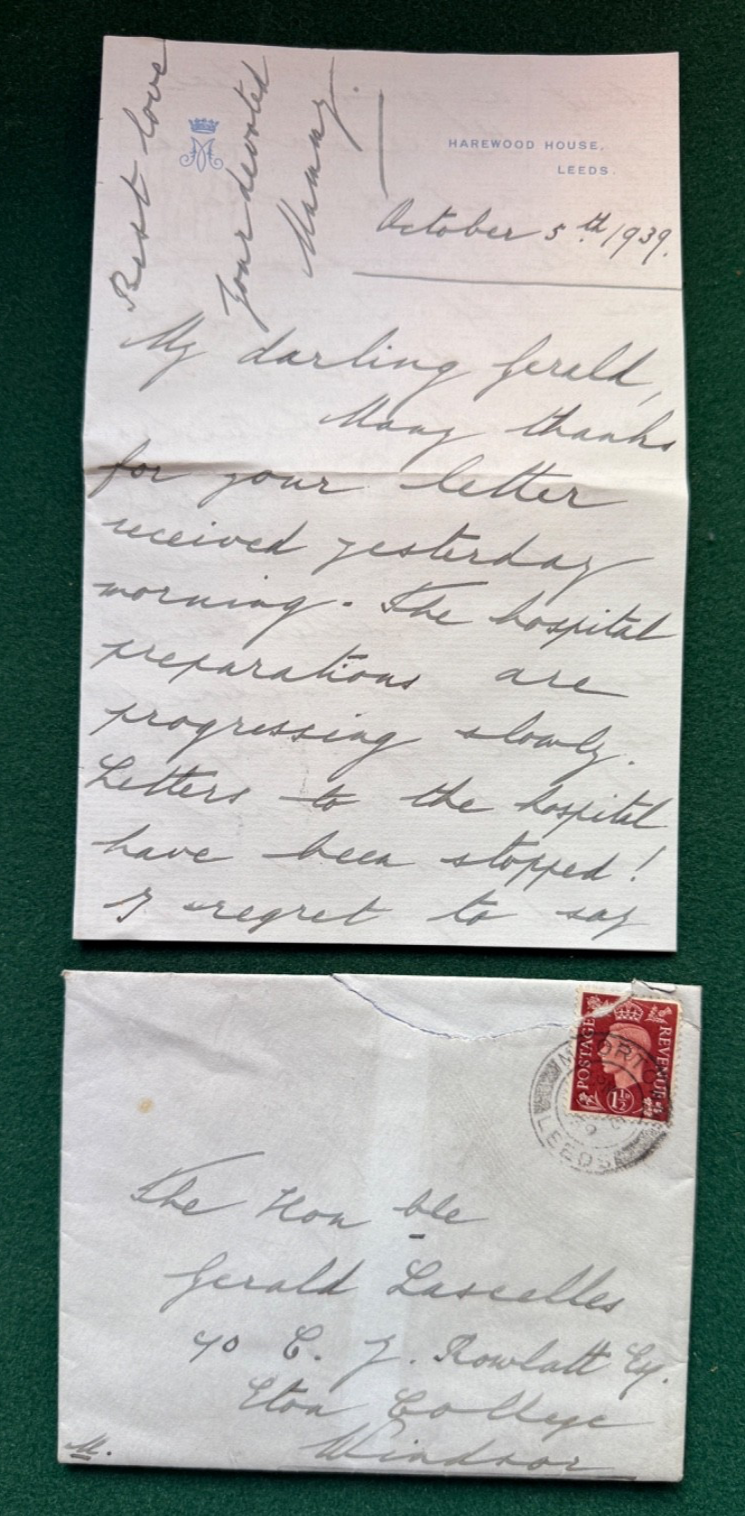 HAREWOOD HOUSE,
LEEDS.
October 5th 1939.
My darling Gerald,
Many thanks
for your letter
received yesterday
morning. The hospital
preparations are
progressing slowly.
Letters to the hospital
have been stopped!
I regret to say
Best love
Your devoted
Mummy.
POSTAGE
REVENUE
1½
LEEDS
The Hon ble
Gerald Lascelles
c/o C. J. Rowlatt Esq.
Eton College
Windsor
M.